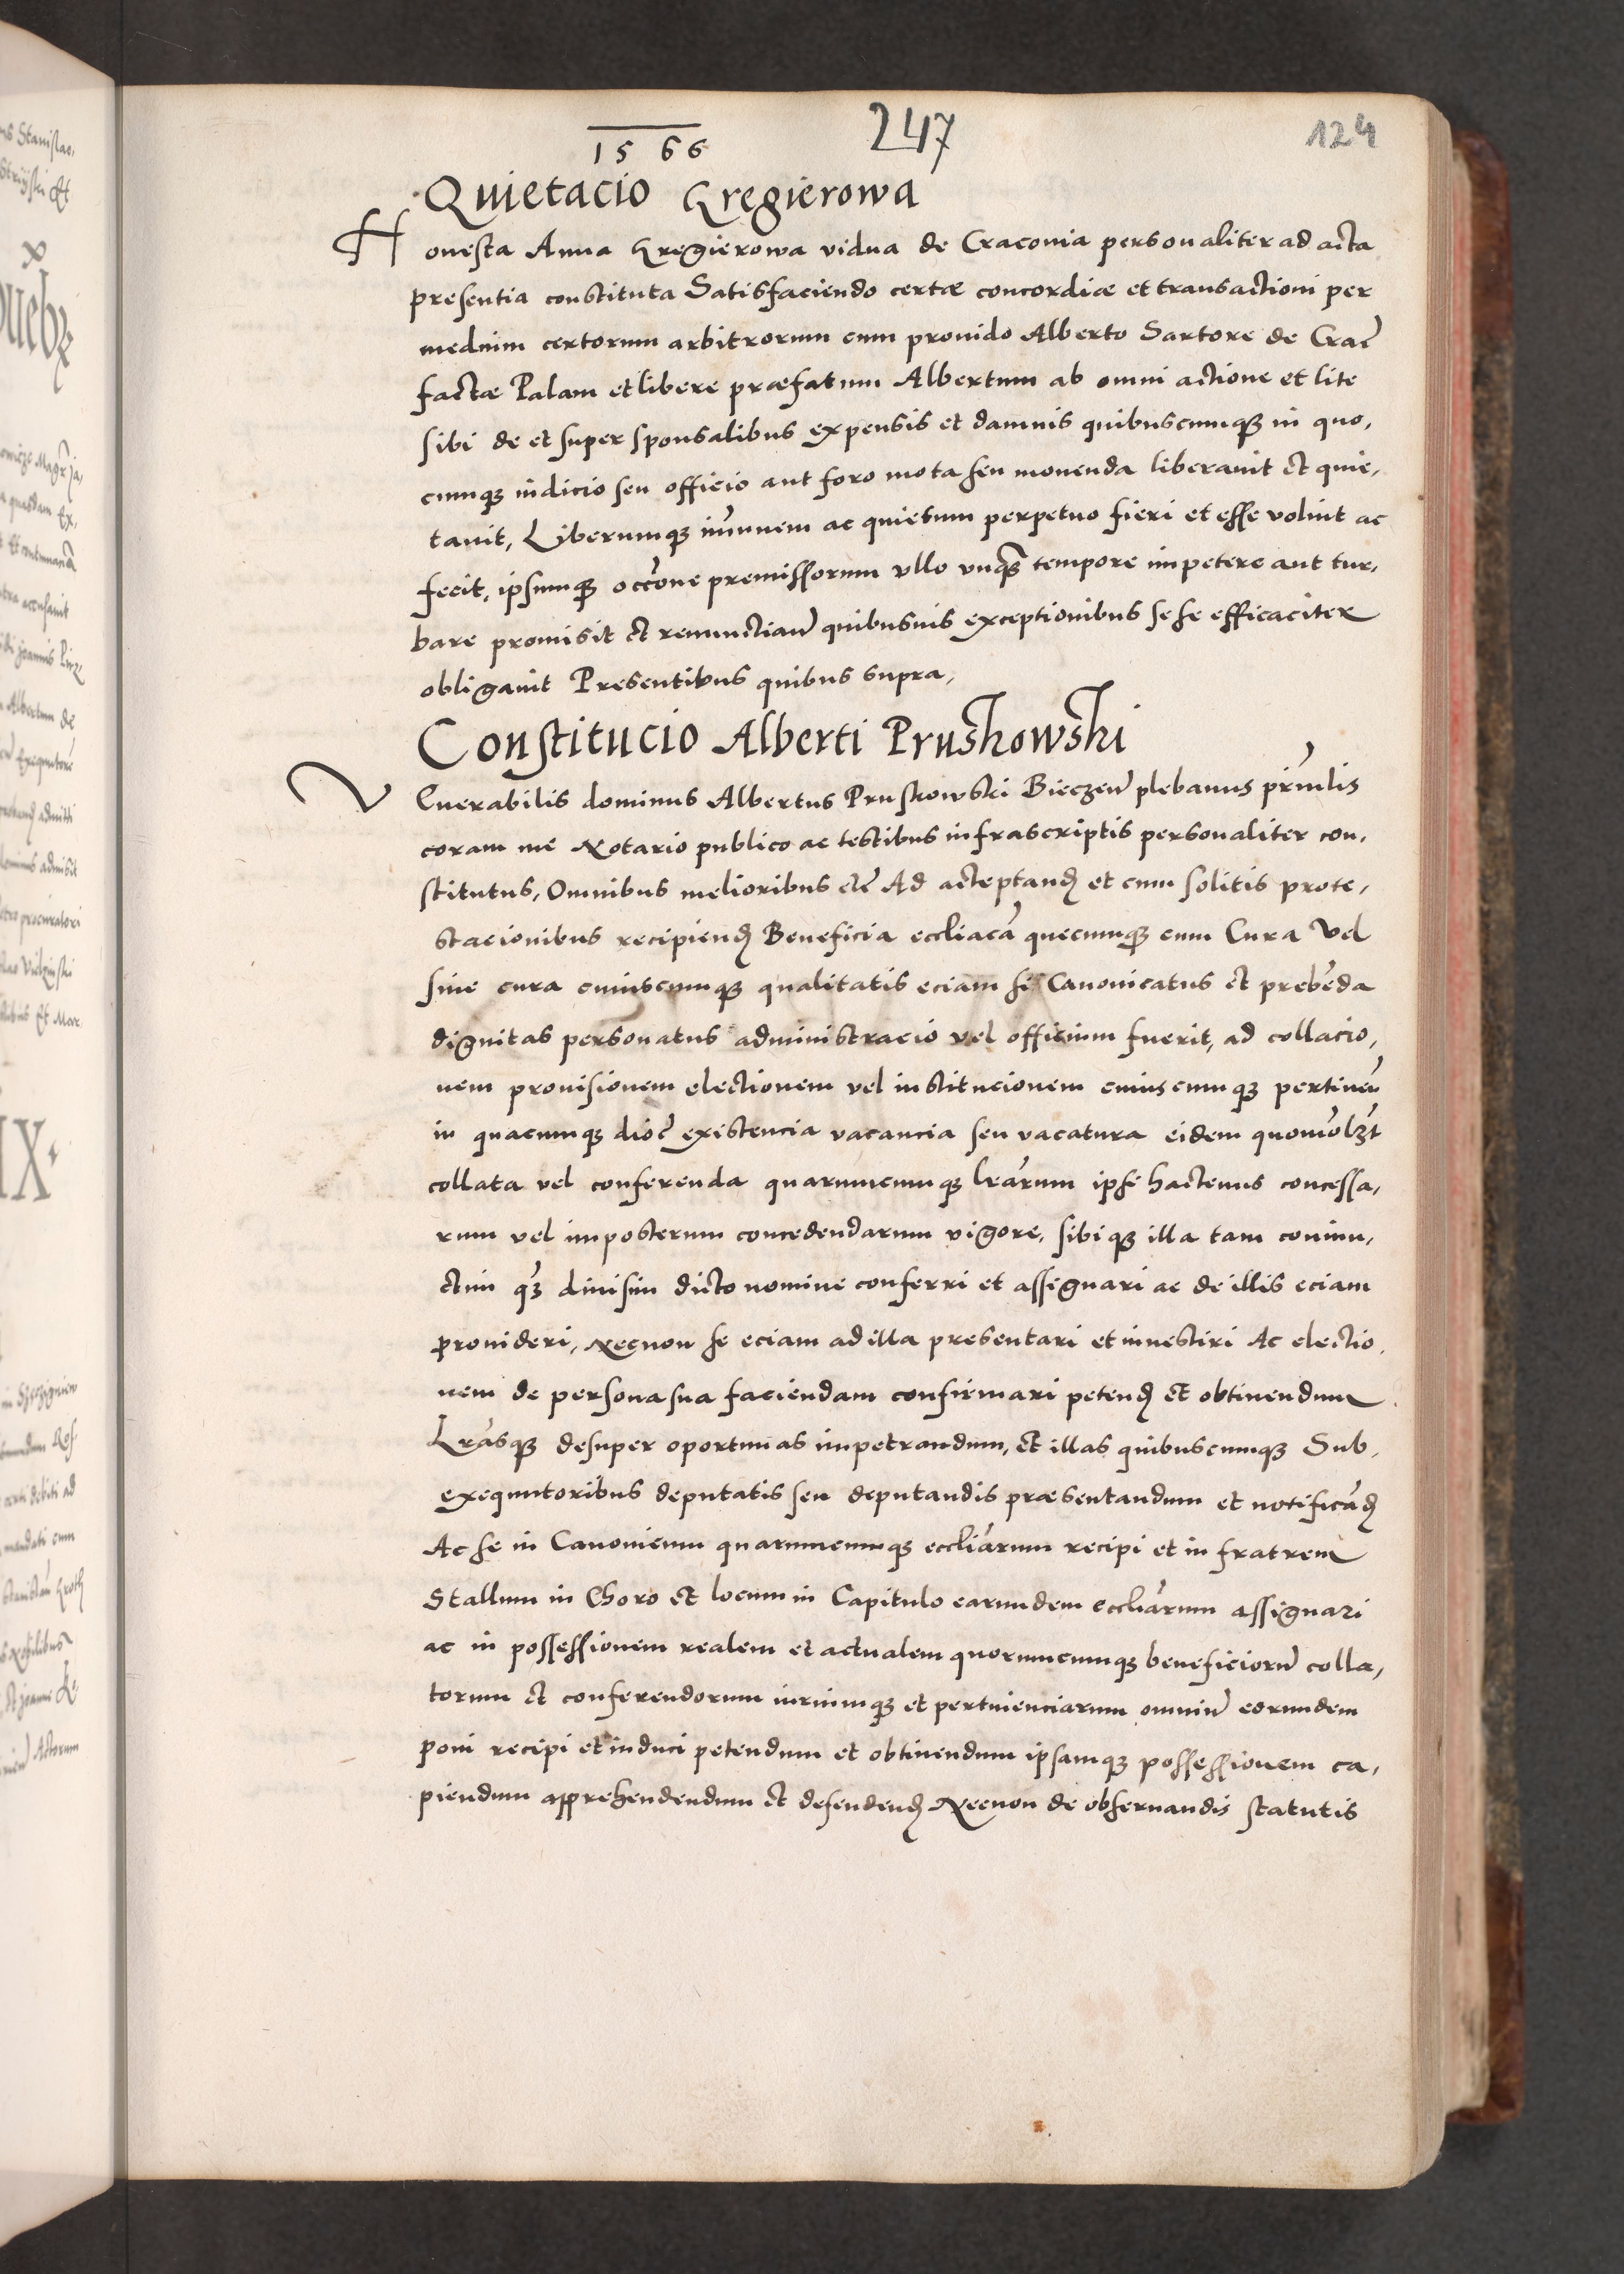 1566
247
124
Quietacio Kregierowa
Honesta Anna Kregierowa vidua de Cracovia personaliter ad acta
presentia constituta Satisfaciendo certæ concordiæ et transactioni per
medium certorum arbitrorum cum prouido Alberto Sartore de Crac̃
factæ Palam et libere præfatum Albertum ab omni actione et lite
sibi de et super sponsalibus expensis et damnis quibuscumqꝫ in quo,
cumqꝫ iudicio seu officio aut foro mota seu mouenda liberauit et quie,
tauit, Liberumqꝫ im̃unem ac quietum perpetuo fieri et esse voluit ac
fecit, ipsumqꝫ occõne premissorum vllo vnqꝫ tempore impetere aut tur,
bare promisit et renunctiañ quibusuis exceptionibus sese efficaciter
obligauit Presentibus quibus supra,
Constitucio Alberti Pruskowski
VEnerabilis dominus Albertus Pruskowski Bieczeñ plebanus prñlis
coram me Notario publico ac testibus infrascriptis personaliter con,
stitutus, Omnibus melioribus etc̃ Ad acceptanđ et cum solitis prote,
stacionibus recipienđ Beneficia eccliacã quecumqꝫ cum Cura Vel
sine cura cuiuscumqꝫ qualitatis eciam si Canonicatus et prebẽda
dignitas personatus administracio vel officium fuerit, ad collacio,
nem prouisionem electionem vel institucionem cuiuscumqꝫ pertineñ
in quacumqꝫ dioc̃ existencia vacancia seu vacatura eidem quomõlꝫt
collata vel conferenda quarumcumqꝫ lrãrum ipse hactenus concessa,
rum vel imposterum concedendarum vigore, sibiqꝫ illa tam coniun,
ctim qꝫ diuisim dicto nomine conferri et assignari ac de illis eciam
prouideri, Necnon se eciam ad illa presentari et inuestiri Ac electio,
nem de persona sua faciendam confirmari petenđ et obtinendum
Lrãsqꝫ desuper oportunas impetrandum, et illas quibuscumqꝫ Sub,
exequutoribus deputatis seu deputandis præsentandum et notificãđ
Ac se in Canonicum quarumcumqꝫ eccliãrum recipi et in fratrem
Stallum in Choro et locum in Capitulo earundem eccliãrum assignari
ac in possessionem realem et actualem quorumcumqꝫ beneficiorũ colla,
torum et conferendorum iuriumqꝫ et pertinenciarum omniũ eorundem
poni recipi et induci petendum et obtinendum ipsamqꝫ possessionem ca,
piendum apprehendendum et defendenđ Necnon de obseruandis statutis